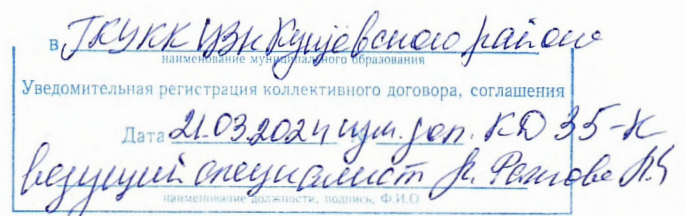 в ГКУ КК ЦЗН Кущёвского района
наименование муниципального образования
Уведомительная регистрация коллективного договора, соглашения
Дата 21.03.2024 изм. доп. КД 35-К
ведущий специалист
наименование должности, подпись, Ф.И.О